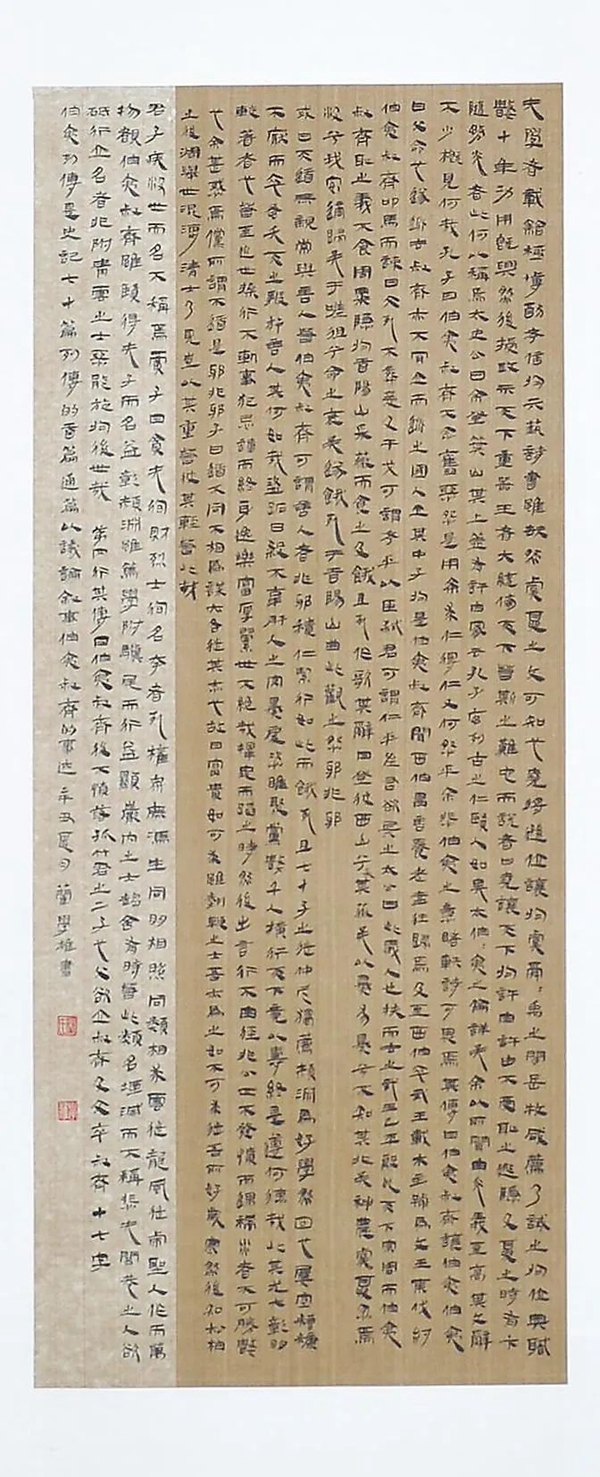 夫學者載籍極博猶考信於六藝詩書雖缺然虞夏之文可知也堯將遜位讓於虞舜禹之間岳牧咸薦乃試之於位典職
數十年功用既興然後授政示天下重器王者大統傳天下若斯之難也而說者曰堯讓天下於許由許由不受恥之逃隱及夏之時有卞
隨務光者此何以稱焉太史公曰余登箕山其上蓋有許由冢云孔子序列古之仁賢人如吳太伯夷之倫詳矣余以所聞由光義至高其文辭
不少概見何哉孔子曰伯夷叔齊不念舊惡怨是用希求仁得仁又何怨乎余悲伯夷之意睹軼詩可異焉其傳曰伯夷叔齊讓伯夷伯夷
曰父命也遂逃去叔齊亦不肯立而逃之國人立其中子於是伯夷叔齊聞西伯昌善養老盍往歸焉及至西伯卒武王載木主號為文王東伐紂
伯夷叔齊叩馬而諫曰父死不葬爰及干戈可謂孝乎以臣弒君可謂仁乎左右欲兵之太公曰此義人也扶而去之武王已平殷亂天下宗周而伯夷
叔齊恥之義不食周粟隱於首陽山采薇而食之及餓且死作歌其辭曰登彼西山兮采其薇矣以暴易暴兮不知其非矣神農虞夏忽焉
沒兮我安適歸矣于嗟徂兮命之衰矣遂餓死于首陽山由此觀之怨邪非邪
或曰天道無親常與善人若伯夷叔齊可謂善人者非邪積仁絜行如此而餓死且七十子之徒仲尼獨薦顏淵為好學然回也屢空糟糠
不厭而卒蚤夭天之報施善人其何如哉盜跖日殺不辜肝人之肉暴戾恣睢聚黨數千人橫行天下竟以壽終是遵何德哉此其尤大彰明
較著者也若至近世操行不軌事犯忌諱而終身逸樂富厚累世不絕或擇地而蹈之時然後出言行不由徑非公正不發憤而遇禍災者不可勝數
也余甚惑焉儻所謂天道是邪非邪子曰道不同不相為謀亦各從其志也故曰富貴如可求雖執鞭之士吾亦為之如不可求從吾所好歲寒然後知松柏
之後凋舉世混濁清士乃見豈以其重若彼其輕若此哉
君子疾沒世而名不稱焉賈子曰貪夫徇財烈士徇名夸者死權眾庶馮生同明相照同類相求雲從龍風從虎聖人作而萬
物覩伯夷叔齊雖賢得夫子而名益彰顏淵雖篤學附驥尾而行益顯巖穴之士趨舍有時若此類名堙滅而不稱悲夫閭巷之人欲
砥行立名者非附青雲之士惡能施於後世哉 第四行其傳曰伯夷叔齊後不慎落孤竹君之二子也父欲立叔齊及父卒叔齊十七字
伯夷列傳是史記七十篇列傳的首篇通篇以議論敘事伯夷叔齊的事迹 辛丑夏月 蘭學雄書